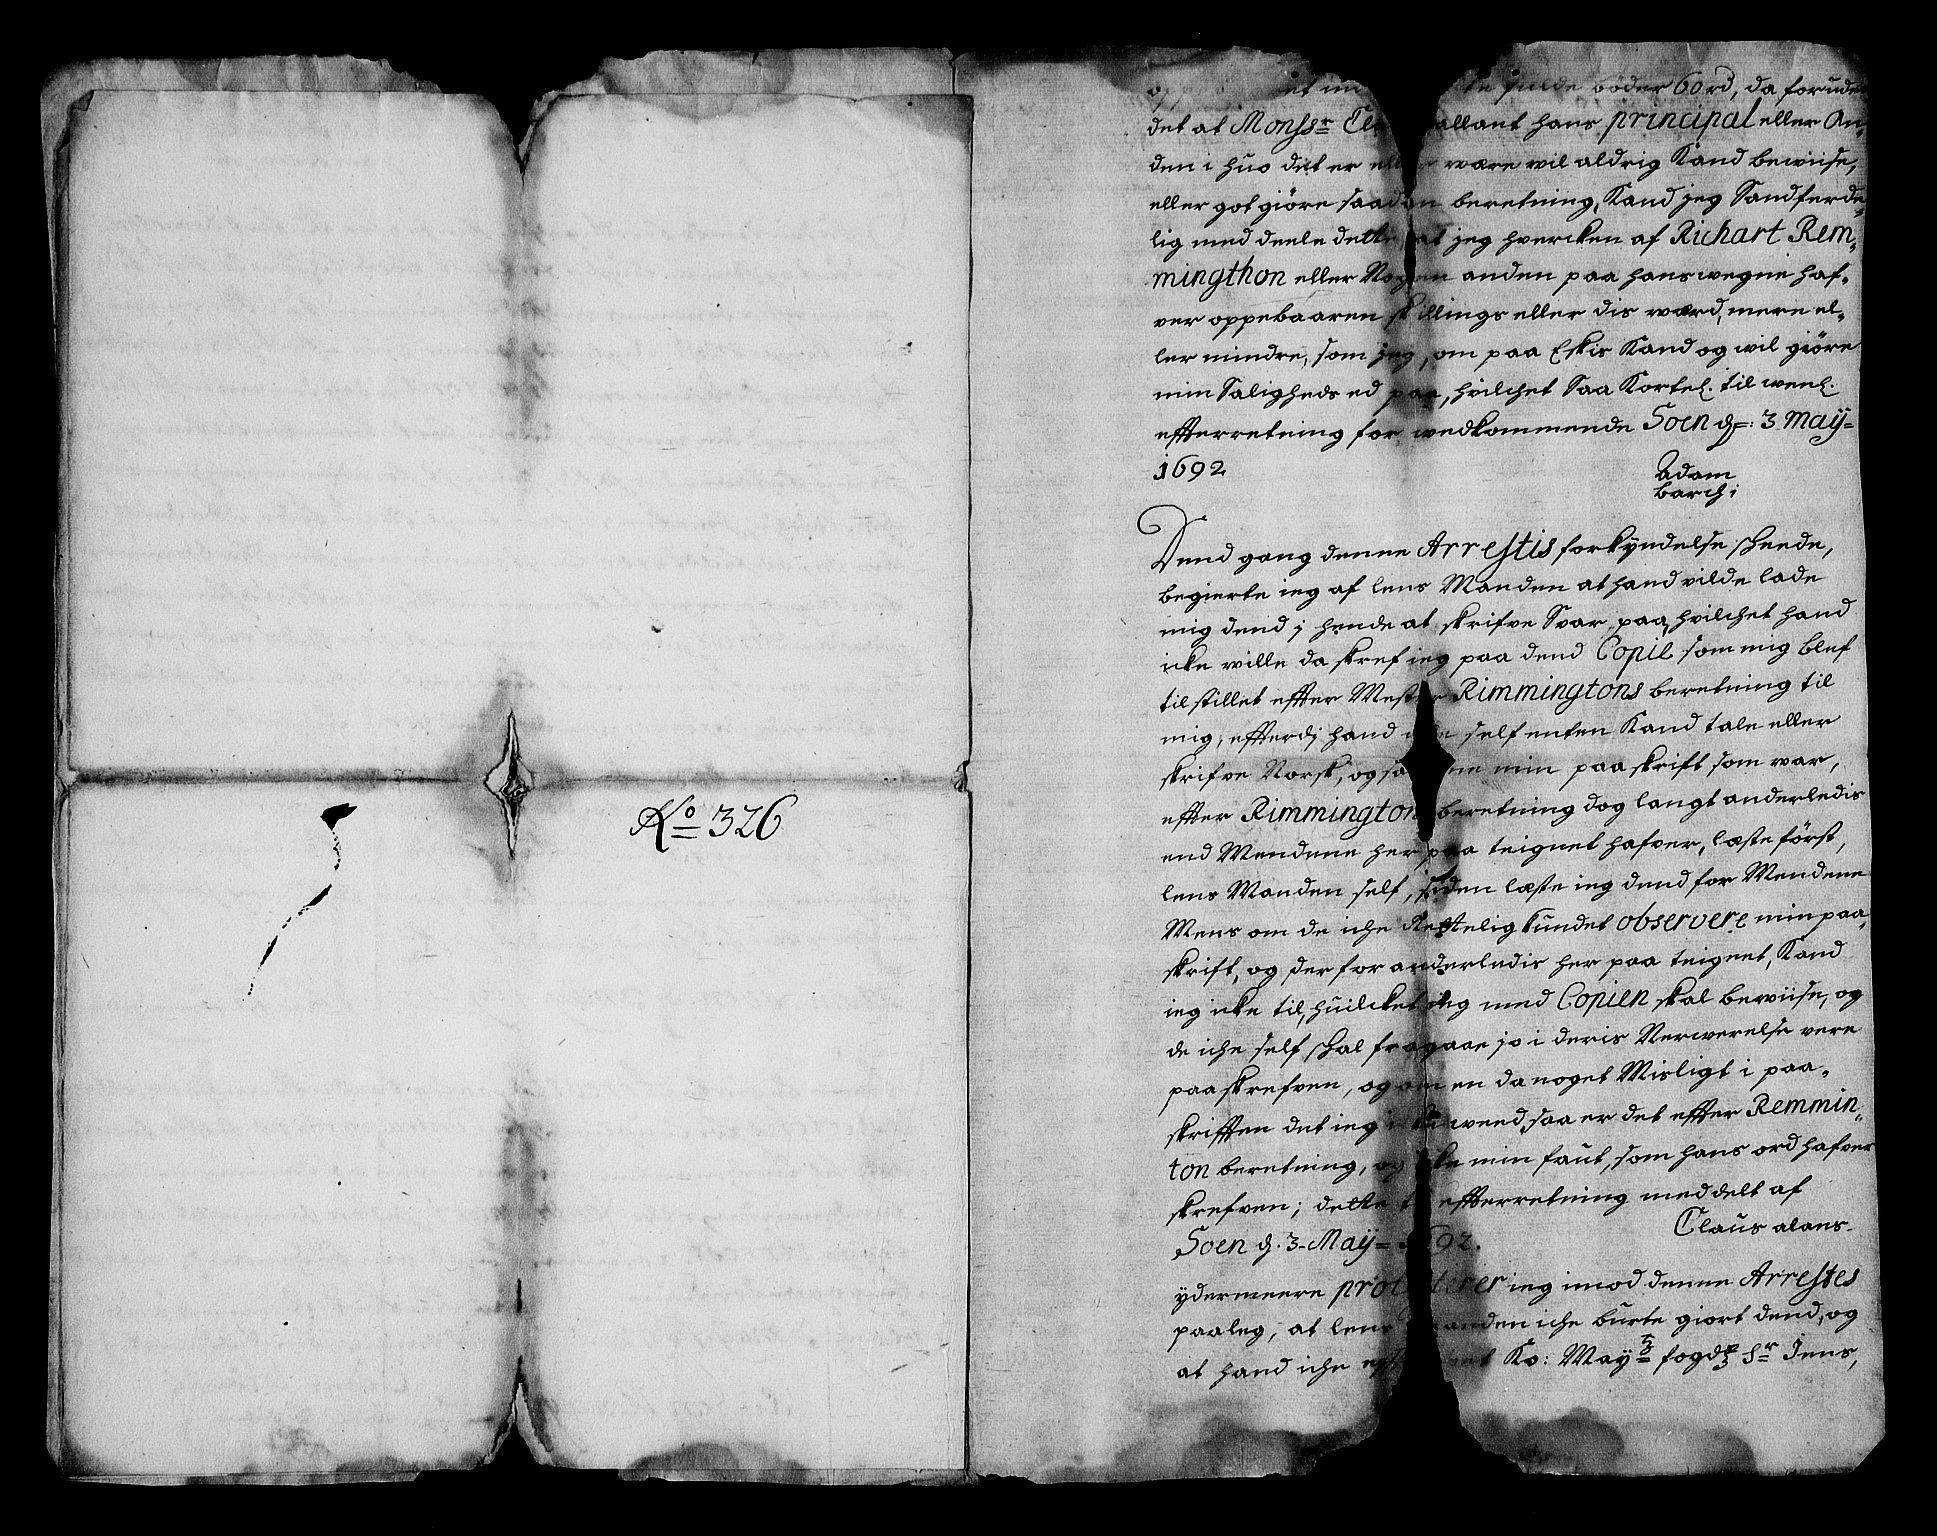 No 326
et im te finde bøder 60 rd, da foruden
det at Monssr Cla allant hans principal eller An-
den i huo det er eller være wil aldrig Kand bewiise,
eller got giöre saadan beretning, Kand jeg Sandferde-
lig med deele dette at jeg hvercken af Richart Rem-
mingthon eller Nogen anden paa hans wegne haf-
ver oppebaaren skillings eller dis wærd, mere el-
ler mindre, som jeg, om paa Eskis Kand og wil giöre
min Saligheds ed paa, hvilchet Saa Kortel. til wenl.
effterretning for wedkommende Soen d: 3 May
1692
Adam
Barch;
Dend gang denne Arrestis forkyndelse skeede,
begierte ieg af lens Manden at hand vilde lade
mig dend j hende at skrifve Svar paa, hvilchet hand
icke wille da skref ieg paa dend Copie som mig blef
tilstillet effter Mester Rimmingtons beretning til
mig, efferdj hand icke self enten Kand tale eller
skrifve Norsk, og sa me min paaskrift som war,
effter Rimmingtons beretning dog langt anderledis
end Mendene her paa teignet hafver, læste först,
lens Manden self, siden læste ieg dend for Mendene
Mens om de iche Rettelig kundet observere min paa-
skrift, og der for anderledis her paa teignet, Kand
ieg icke til, huilcket ieg med Copien skal bewiise, og
de iche self skal fragaae jo i deris Nerwerelse vere
paaskrefven, og om en da noget Misligt i paa-
skrifften det ieg i ke weed, saa er det effter Remmin-
ton beretning, og icke min faut, som hans ord hafver
skrefven; dette til effterretning meddelt af
Soen d. 3 May 1692. Claus alans
ydermeere protesterer ieg imod denne Arrestes
paaleg, at lens Manden iche burte giort dend, og
at hand iche eff et Ko: May fogd Sr Jens,